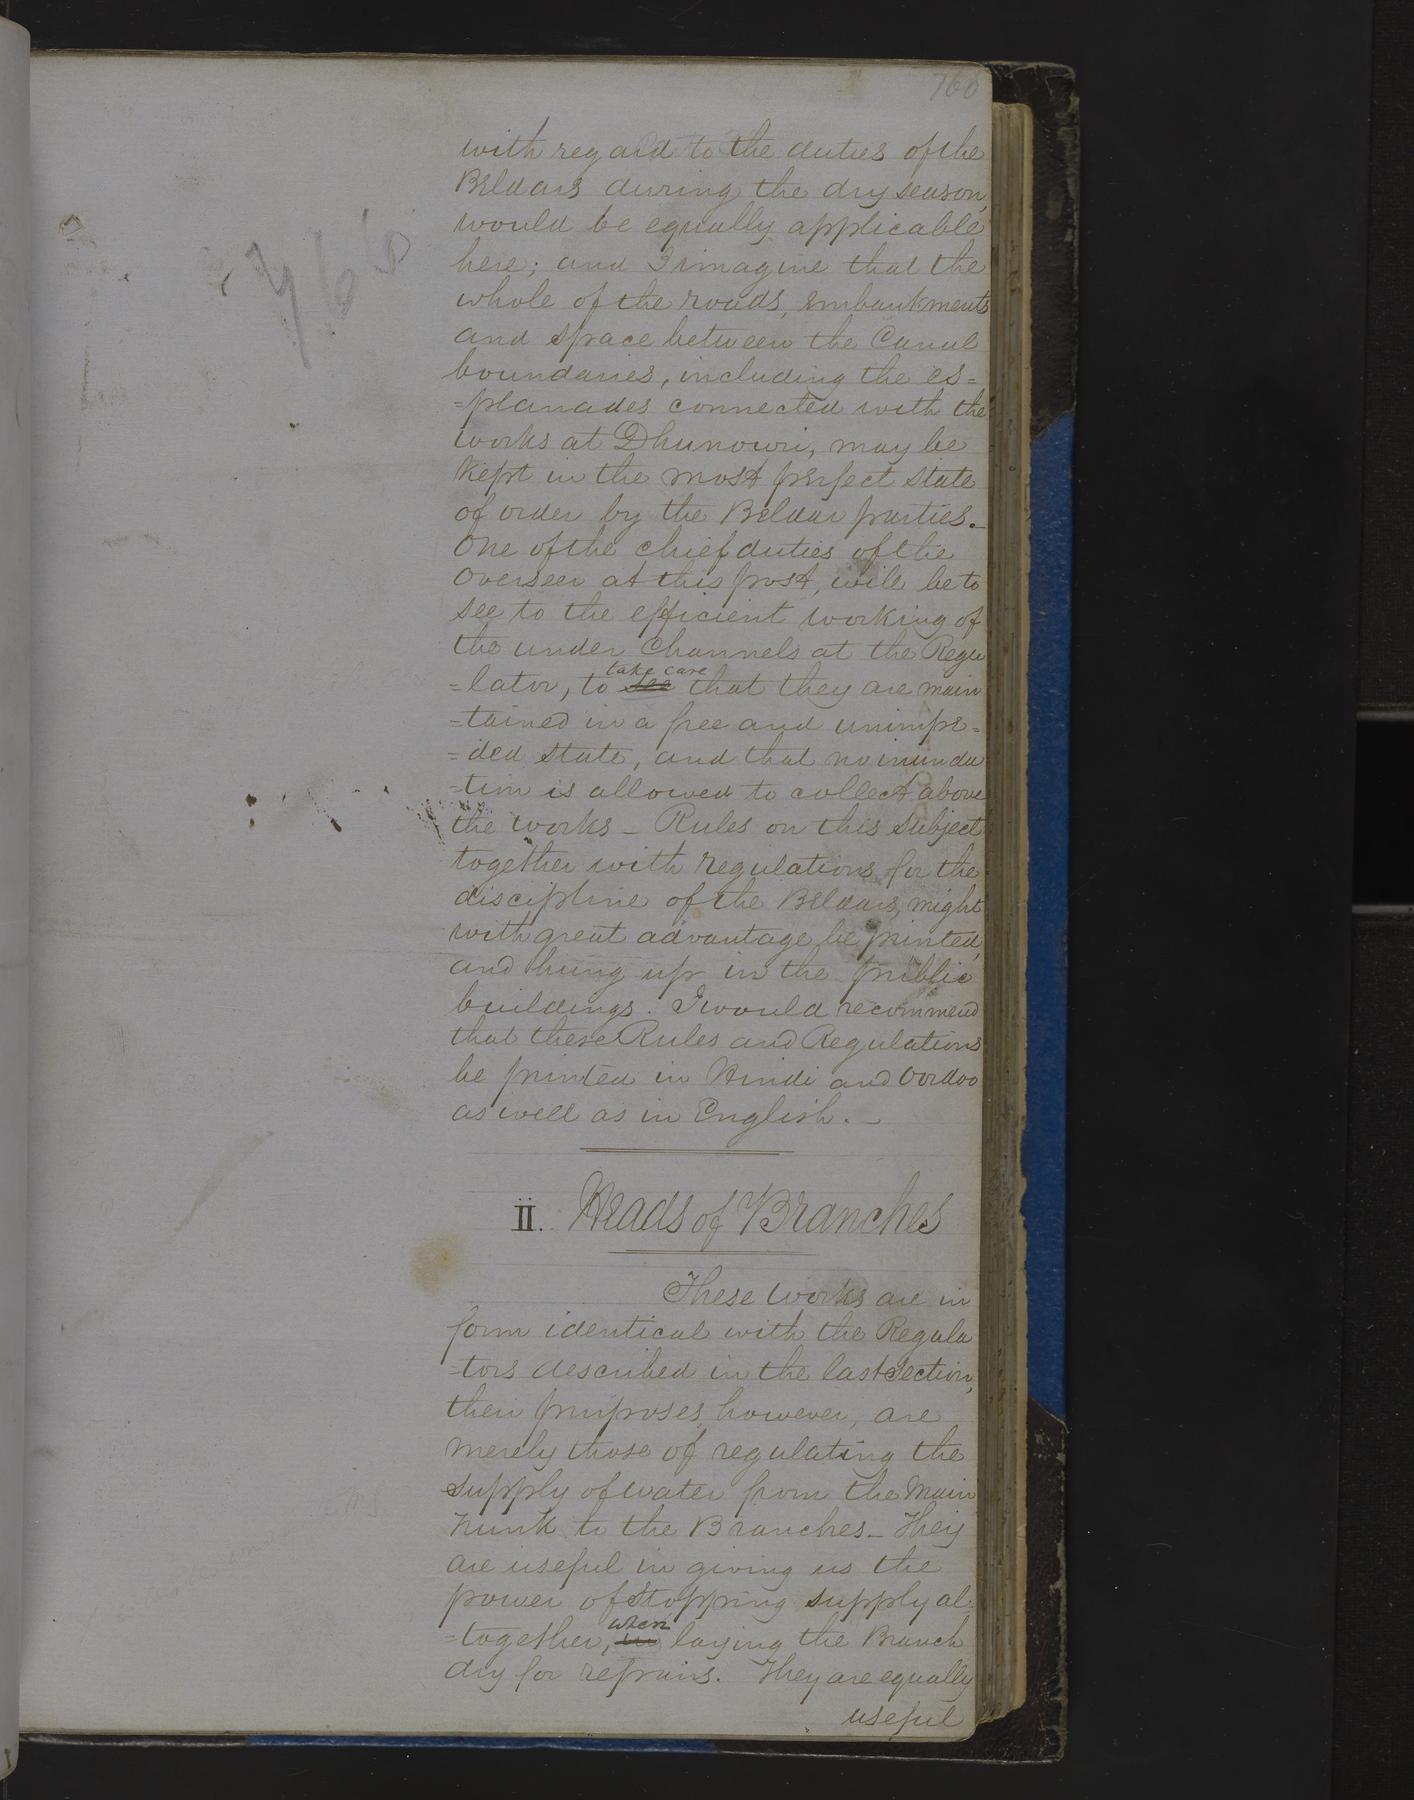 760
766
with regard to the duties of the
Beldars during the dry season,
would be equally applicable
here; and I imagine that the
whole of the roads, embankments
and space between the Canal
boundaries, including the es=
=planades connected with the
works at Dhunowri, may be
kept in the most perfect state
of order by the Beldar parties._
One of the chief duties of the
Overseer at this post, will be to
see to the efficient working of
the under channels at the Regu
take care
=lator, to see that they are main
=tained in a free and unimpe=
=ded state, and that no inunda
=tion is allowed to collect above
the works _ Rules on this subject
together with regulations for the
discipline of the Beldars, might
with great advantage be printed,
and hung up in the public
buildings. I would recommend
that these Rules and Regulations
be printed in Hindi and Oordoo
as well as in English._
II. Heads of Branches
These works are in
form identical with the Regula
=tors described in the last Section,
their purposes, however, are
merely those of regulating the
supply of water from the Main
trunk to the Branches_ They
are useful in giving us the
power of stopping supply al=
when
=together, in laying the Branch
dry for repairs. They are equally
useful